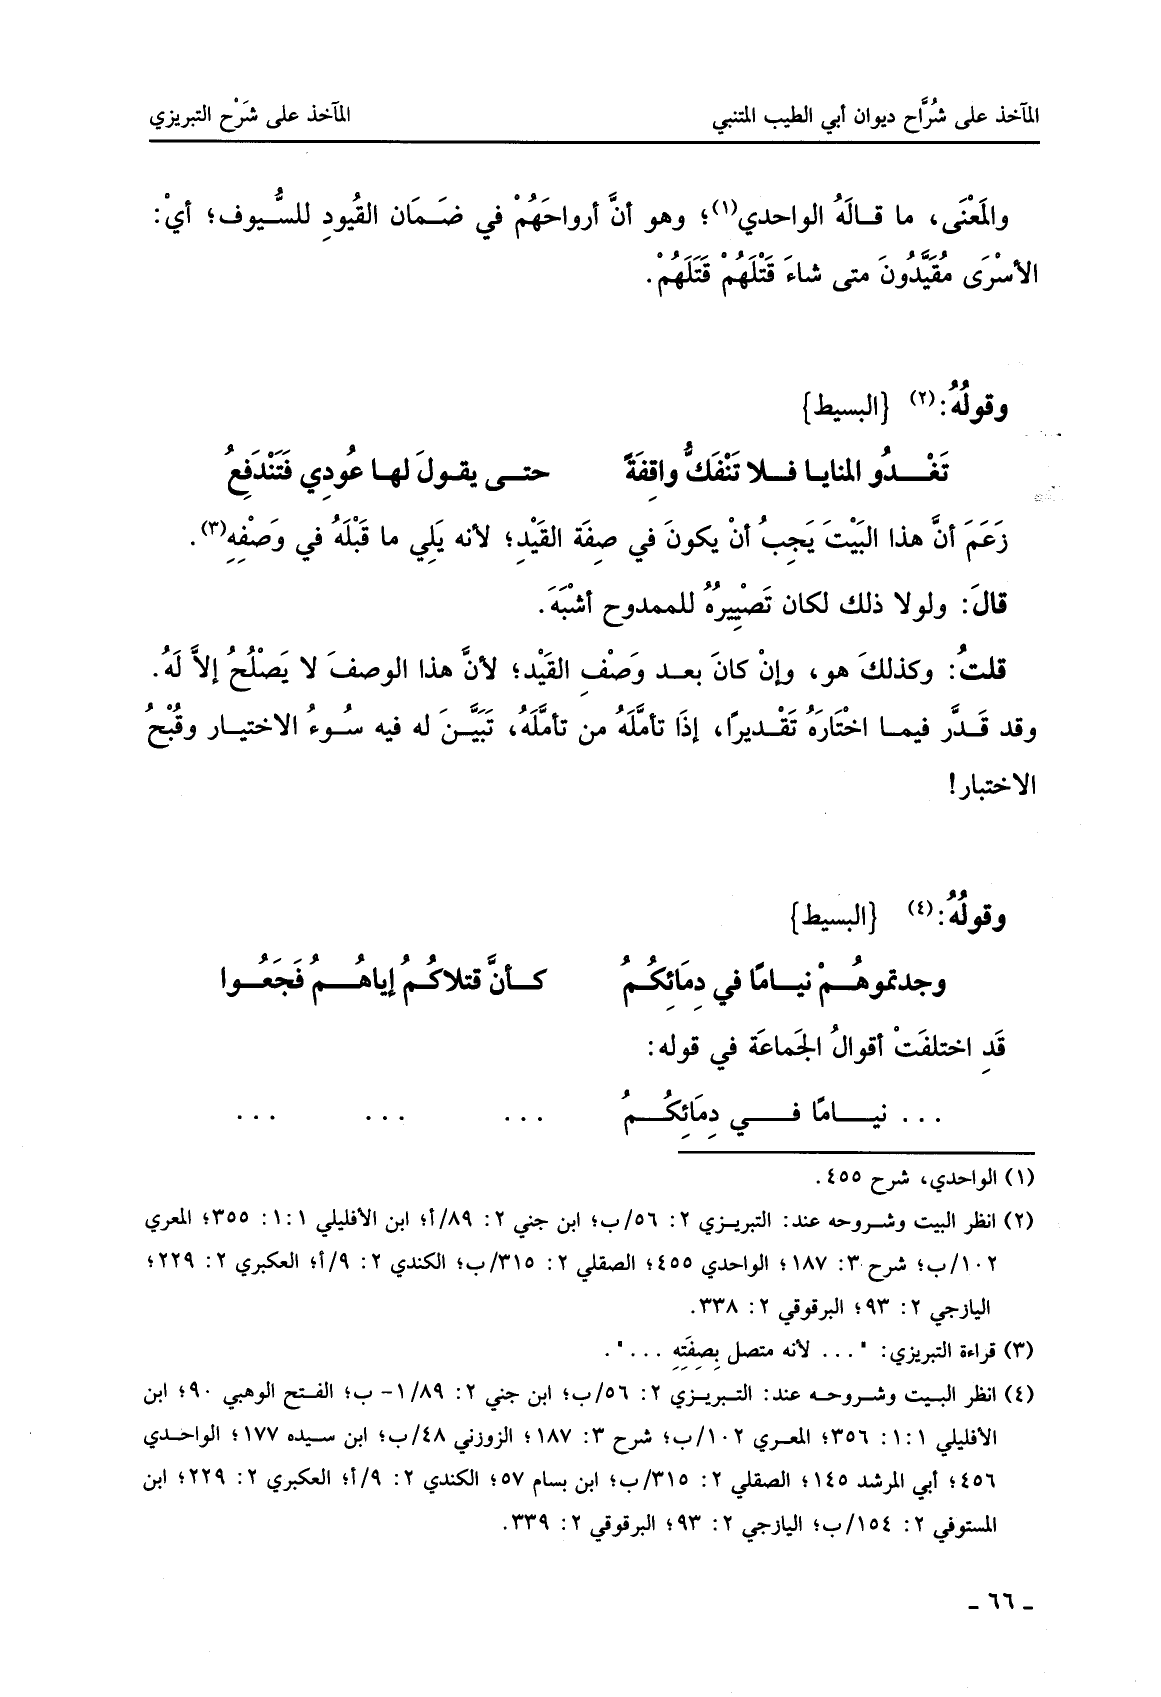 المآخذ على شُرَّاح ديوان أبي الطيب المتنبي المآخذ على شَرْح التبريزي
والمَعْنَى، ما قـالَهُ الواحدي(١)؛ وهو أنَّ أرواحَهُمْ في ضَـمَـان القُيودِ للسُّـيوف؛ أيْ:
الأسْرَى مُقَيَّدُونَ متى شاءَ قَتْلَهُمْ قَتَلَهُمْ.
وقولُهُ:(٢) {البسيط}
تَغْـــدُو المنايـا فـلا تَنْفَكُّ واقِفَةً حتـى يقـولَ لهـا عُودِي فَتَنْدَفِعُ
زَعَمَ أنَّ هذا البَيْتَ يَجِبُ أنْ يكونَ في صِفَة القَيْدِ؛ لأنه يَلِي ما قَبْلَهُ في وَصْفِهِ(٣).
قالَ: ولولا ذلك لكان تَصْيِيرُهُ للممدوح أشْبَهَ.
قلتُ: وكذلكَ هو، وإنْ كانَ بعـد وَصْفِ القَيْد؛ لأنَّ هذا الوصفَ لا يَصْلُحُ إلاَّ لَهُ.
وقد قَـدَّر فيمـا اخْتَارَهُ تَقْـديرًا، إذَا تأمَّلَهُ من تأمَّلَهُ، تَبَيَّـنَ له فيه سُـوءُ الاختيـار وقُبْحُ
الاختبار!
وقولُهُ:(٤) {البسيط}
وجدتموهُــمْ نيـامًا في دِمَائِكُـمُ كـأنَّ قتلاكُـمُ إياهُـــمُ فَجَعُــوا
قَدِ اختلفَتْ أقوالُ الجَماعَة في قوله:
... نيــامًا فــــي دِمَائِكُـــمُ ... ... ...
(١) الواحدي، شرح ٤٥٥.
(٢) انظر البيت وشروحه عند: التبريزي ٢: ٥٦/ب؛ ابن جني ٢: ٨٩/أ؛ ابن الأفليلي ١:١: ٣٥٥؛ المعري
١٠٢/ب؛ شرح ٣: ١٨٧؛ الواحدي ٤٥٥؛ الصقلي ٢: ٣١٥/ب؛ الكندي ٢: ٩/أ؛ العكبري ٢: ٢٢٩؛
اليازجي ٢: ٩٣؛ البرقوقي ٢: ٣٣٨.
(٣) قراءة التبريزي: "... لأنه متصل بِصِفَتِهِ ...".
(٤) انظر البـيت وشروحـه عند: التبـريـزي ٢: ٥٦/ب؛ ابن جني ٢: ١/٨٩- ب؛ الفـتح الوهبي ٩٠؛ ابن
الأفليلي ١:١: ٣٥٦؛ المعـري ١٠٢/ب؛ شرح ٣: ١٨٧؛ الزوزني ٤٨/ب؛ ابن سيده ١٧٧؛ الواحـدي
٤٥٦؛ أبي المرشد ١٤٥؛ الصقلي ٢: ٣١٥/ب؛ ابن بسام ٥٧؛ الكندي ٢: ٩/أ؛ العكبري ٢: ٢٢٩؛ ابن
المستوفي ٢: ١٥٤/ب؛ اليازجي ٢: ٩٣؛ البرقوقي ٢: ٣٣٩.
ـ ٦٦ ـ